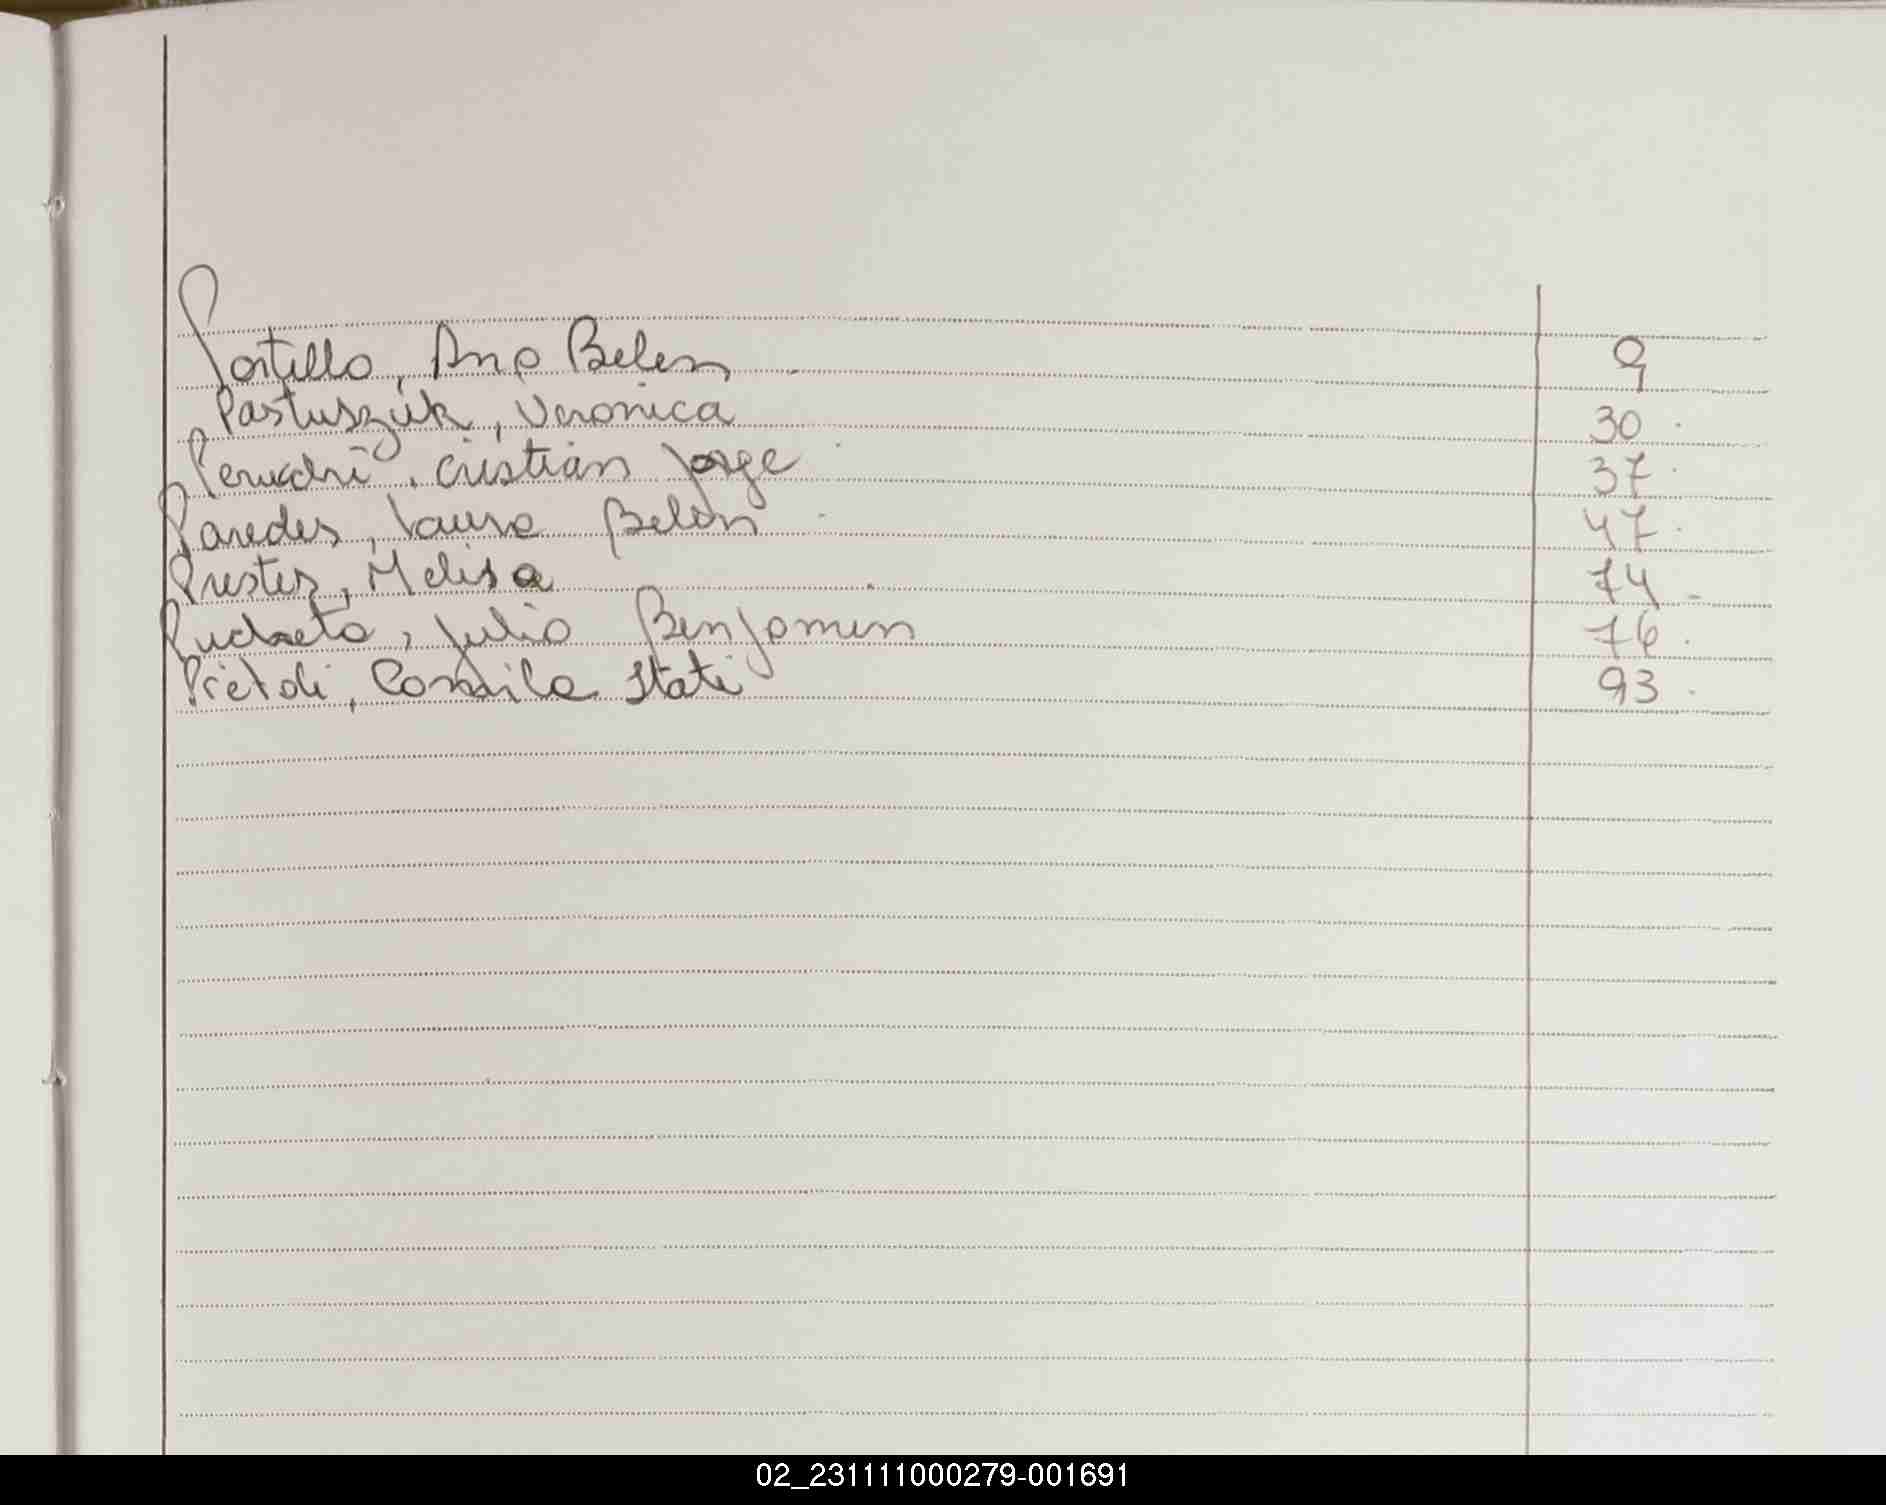 Portillo, Ana Belen 9
Pastuszuk, Veronica 30
Cristian Jorge 37
Paredes, Laura Belen 47
Prestes, Melisa 74
Julio Benjamin 76
Camila Itati 93
02_231111000279-001691